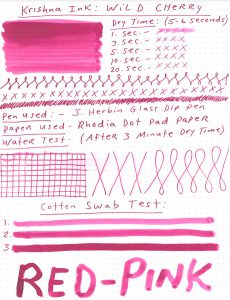 Krishna Ink: Wild Cherry
Dry Time: (5-6 seconds)
1. sec. -
3. sec. - x x x x
5. sec. - x x x x
10. sec. - x x x x
20. sec. - x x x x
x x x x x x x x x x x x x x x x x x x x
Pen Used: - J. Herbin Glass Dip Pen
Paper Used - Rhodia Dot Pad Paper
Water Test - (After 3 Minute Dry Time)
Cotton Swab Test:
1.
2.
3.
RED-PINK